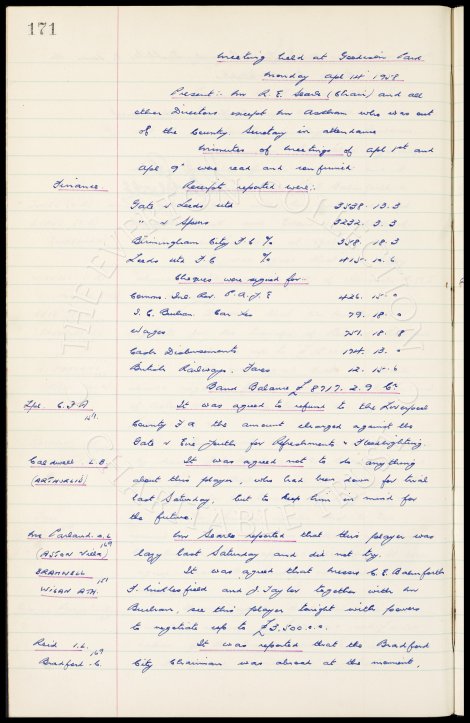 171
Meeting held at Goodison Park
Monday Apl 14 1958
Present:- Mr R. E. Searle (Chair) and all
other Directors except Mr who was out
of the County. Secretary in attendance
Minutes of Meetings of Apl 1st and
Apl 9th were read and confirmed
Finance Receipts reported were:-
Gate v Leeds Utd 3538. 13. 3
" v Spurs 3232. 3. 3
Birmingham City F C % 358. 18. 3
Leeds Utd F.C % 415. 12. 6
Cheques were signed for:-
Comms. Inl. Rev. P.A.Y.E 426. 15. 0
Car 79. 18. 0
Wages 751. 18. 8
Cash Disbursements 174. 13. 0
British Railways. Fares 12. 15. 6
Bank Balance £8717. 2. 9 Cr
Lpl. C.F.A It was agreed to refund to the Liverpool
151
County F A the amount charged against the
Gate v Eire Youth for Refreshments & Floodlighting.
Caldwell. L.B. It was agreed not to do anything
(ARTHURLIE) about this player, who had been down for trial
last Saturday, but to keep him in mind for
the future.
Mc Parland. Mr Searle reported that this player was
169
(ASTON Villa) lazy last Saturday and did not try.
BRAMWELL It was agreed that Messrs C.E. Balmforth
151
WIGAN ATH. F. Micklesfield and J Taylor together with Mr
Buchan, see this player tonight with powers
to negotiate up to £3,500.0.0.
Reid I.L. It was reported that the Bradford
169
Bradford C. City Chairman was abroad at the moment,
THE EVERTON COLLECTION CHARITABLE